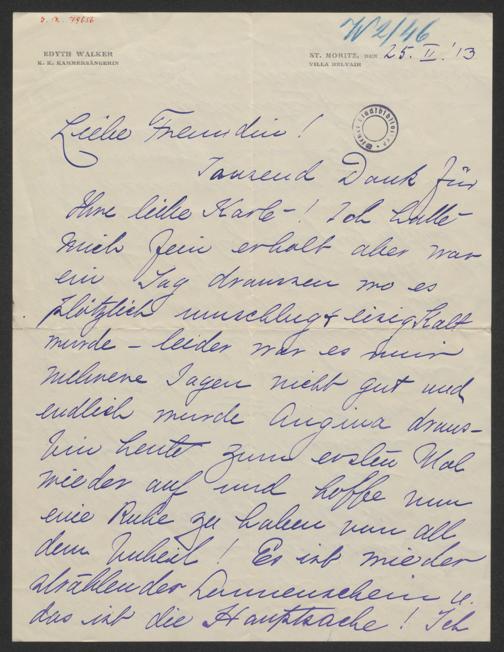 J. N. 79656
W2/46
EDYTH WALKER
K. K. KAMMERSÄNGERIN
ST. MORITZ, DEN 25. II. '13
VILLA BELVAIR
Liebe Freundin!
Tausend Dank für
Ihre liebe Karte-! Ich hatte
mich fein erholt aber war
ein Tag draussen wo es
plötzlich umschlug + eisig kalt
wurde - leider war es mir
mehrere Tagen nicht gut und
endlich wurde Angina draus-
bin heute zum ersten Mal
wieder auf und hoffe nun
eine Ruhe zu haben von all
dem Unheil! Es ist wieder
strahlender Sonnenschein u.
das ist die Hauptsache! Ich